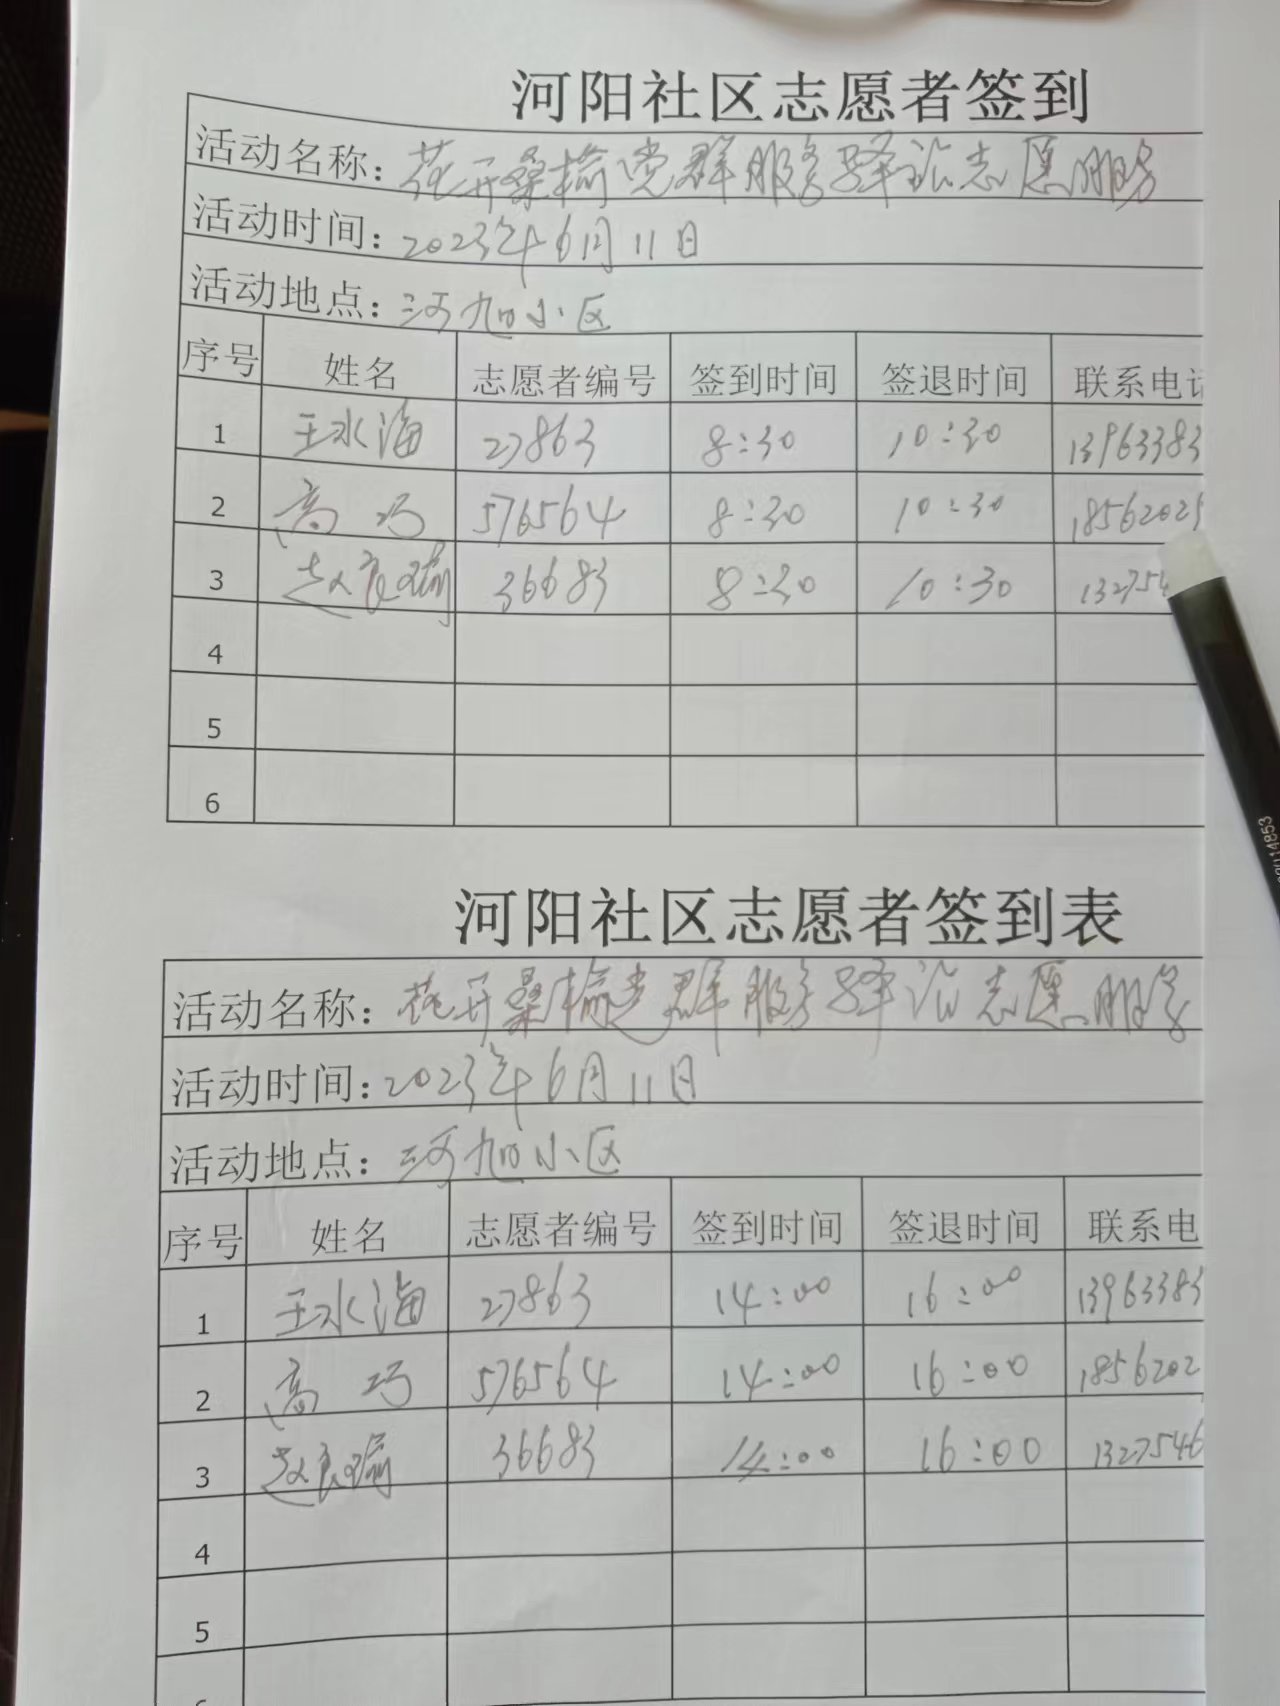 河阳社区志愿者签到
活动名称：花开桑榆党群服务驿站志愿服务
活动时间：2023年6月11日
活动地点：河旭小区
序号 姓名 志愿者编号 签到时间 签退时间 联系电话
1 王水海 27863 8:30 10:30 13963383
2 高巧 576564 8:30 10:30 18562025
3 赵良瑜 36683 8:30 10:30 132754
4
5
6
河阳社区志愿者签到表
活动名称：花开桑榆党群服务驿站志愿服务
活动时间：2023年6月11日
活动地点：河旭小区
序号 姓名 志愿者编号 签到时间 签退时间 联系电
1 王水海 27863 14:00 16:00 13963383
2 高巧 576564 14:00 16:00 1856202
3 赵良瑜 36683 14:00 16:00 1327546
4
5